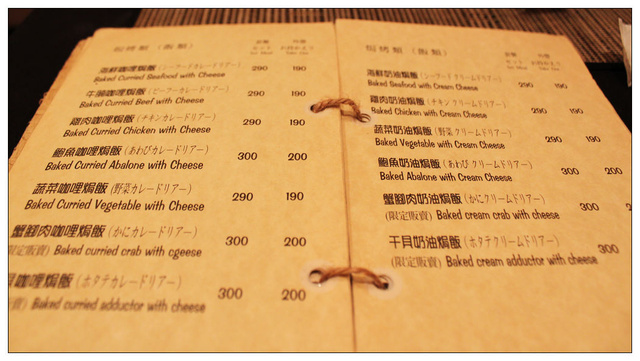 焗烤類 (飯類)
海鮮咖哩焗飯 (シーフードカレードリアー) 290 190
Baked Curried Seafood with Cheese
牛腩咖哩焗飯 (ビーフーカレードリアー) 290 190
Baked Curried Beef with Cheese
雞肉咖哩焗飯 (チキンカレードリアー) 290 190
Baked Curried Chicken with Cheese
鮑魚咖哩焗飯 (あわびカレードリアー) 300 200
Baked Curried Abalone with Cheese
蔬菜咖哩焗飯 (野菜カレードリアー) 290 190
Baked Curried Vegetable with Cheese
蟹腳肉咖哩焗飯 (かにカレードリアー) 300 200
(限定販賣) Baked curried crab with cgeese
貝咖哩焗飯 (ホタテカレードリアー) 300 200
賣) Baked curried adductor with cheese
焗烤類 (飯類)
海鮮奶油焗飯 (シーフードクリームドリアー) 290 190
Baked Seafood with Cream Cheese
雞肉奶油焗飯 (チキンクリームドリアー) 290 190
Baked Chicken with Cream Cheese
蔬菜奶油焗飯 (野菜クリームドリアー) 290 190
Baked Vegetable with Cream Cheese
鮑魚奶油焗飯 (あわびクリームドリアー) 300 200
Baked Abalone with Cream Cheese
蟹腳肉奶油焗飯 (かにクリームドリアー) 300 2
(限定販賣) Baked cream crab with cheese
干貝奶油焗飯 (ホタテクリームドリアー) 300
(限定販賣) Baked cream adductor with cheese